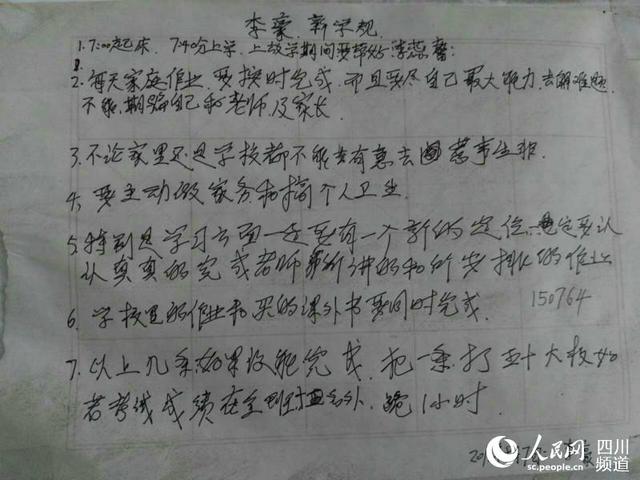 李豪 新家规
1. 7:00起床. 7:40分上学, 上放学期间要带好李蕊馨.
2. 每天家庭作业, 要按时完成, 而且要尽自己最大能力, 去解难题
不能欺骗自己和老师及家长.
3. 不论家里还是学校都不能去有意去惹事生非.
4. 要主动做家务和搞个人卫生.
5. 特别是学习方面一定要有一个新的定位. 一定要认
认真真的完成老师所讲的和所安排的作业
6. 学校里的作业和买的课外书要同时完成.
150764
7. 以上几条如果没能完成, 把一条打五十大板如
若考试成绩在全班 名外, 跪1小时.
人民网 四川频道
sc.people.com.cn